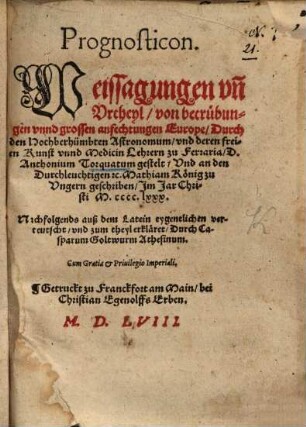 N.
21.
Prognosticon.
Weissagungen vñ
Vrcheyl / von betrübun-
gen vnnd grossen anfechtungen Europe / Durch
den Hochberhümbten Astronomum / vnd deren frei-
en Kunst vnnd Medicin Lehrern zu Ferraria / D.
Anthonium Torquatum gestelt / Vnd an den
Durchleuchtigen ꝛc. Mathiam König zu
Vngern geschriben / Im Jar Chri-
sti M. cccc. lxxx.
Nachfolgends auß dem Latein eygentlichen ver-
teutscht / vnd zum theyl erkläret / Durch Ca-
sparum Goltwurm Athesinum.
Cum Gratia & Priuilegio Imperiali.
¶ Getruckt zu Franckfort am Main / bei
Christian Egenolffs Erben.
M. D. LVIII